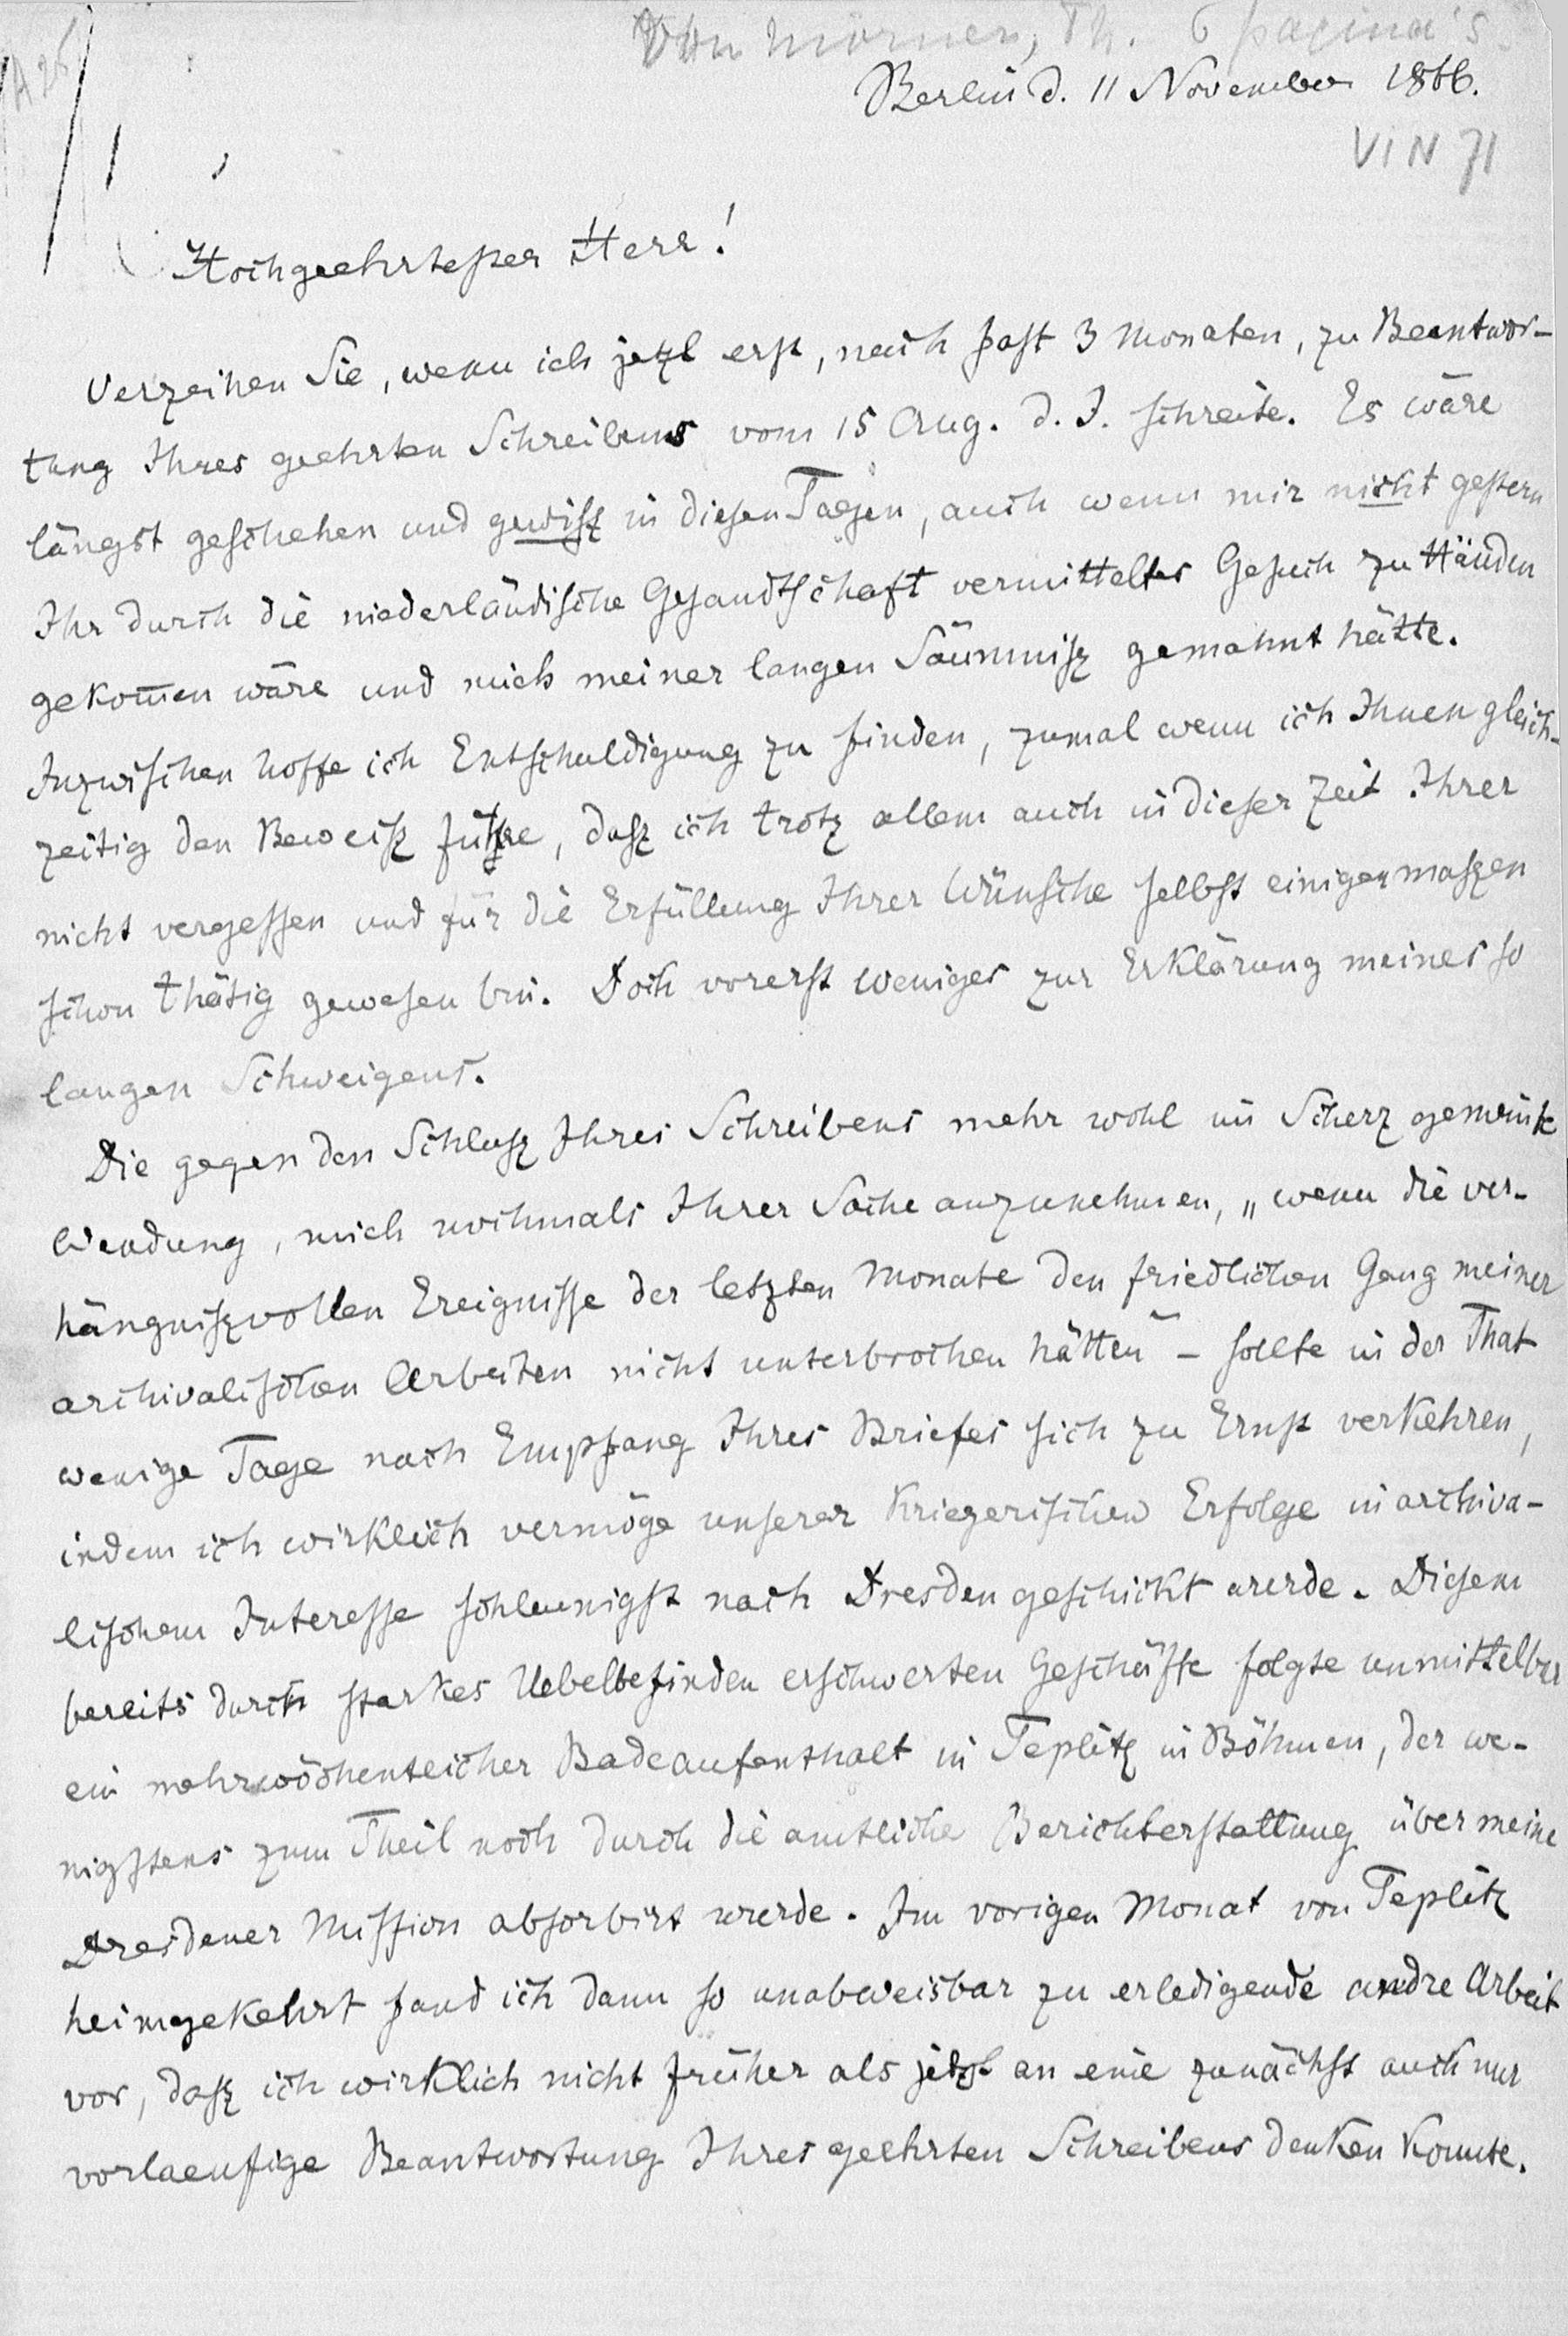 Von Mörner, Th. 6 pagina's.
A 25
Berlin d. 11 November 1866.
VIN 71
Hochgeehrtester Herr!
Verzeihen Sie, wenn ich jetzt erst, nach fast 3 Monaten, zu Beantwor-
tung Ihres geehrten Schreibens vom 15 Aug. d. J. schreite. Es wäre
längst geschehen und gewisz in diesen Tagen, auch wenn mir nicht gestern
Ihr durch die niederländische Gesandtschaft vermitteltes Gesuch zu Händen
gekom̄en wäre und mich meiner langen Säumnisz gemahnt hätte.
Inzwischen hoffe ich Entschuldigung zu finden, zumal wenn ich Ihnen gleich-
zeitig den Beweisz führe, dasz ich trotz allem auch in dieser Zeit Ihrer
nicht vergessen und für die Erfüllung Ihrer Wünsche selbst einigermaszen
schon thätig gewesen bin. Doch vorerst weniges zur Erklärung meines so
langen Schweigens.
Die gegen den Schlusz Ihres Schreibens mehr wohl im Scherz gemeinte
Wendung, mich nochmals Ihrer Sache anzunehmen, „wenn die ver-
hängniszvollen Ereignisse der letzten Monate den friedlichen Gang meiner
archivalischen Arbeiten nicht unterbrochen hätten" – sollte in der That
wenige Tage nach Empfang Ihres Briefes sich zu Ernst verkehren,
indem ich wirklich vermöge unserer kriegerischen Erfolge in archiva-
lischem Interesse schleunigst nach Dresden geschickt wurde. Diesem
bereits durch starkes Uebelbefinden erschwerten Geschäfte folgte unmittelbar
ein mehrwöchentlicher Badeaufenthalt in Teplitz in Böhmen, der we-
nigstens zum Theil noch durch die amtliche Berichterstattung über meine
Dresdener Mission absorbirt wurde. Im vorigen Monat von Teplitz
heimgekehrt fand ich dann so unabweisbar zu erledigende andre Arbeit
vor, dasz ich wirklich nicht früher als jetzt an eine zunächst auch nur
vorlaeufige Beantwortung Ihres geehrten Schreibens denken konnte.